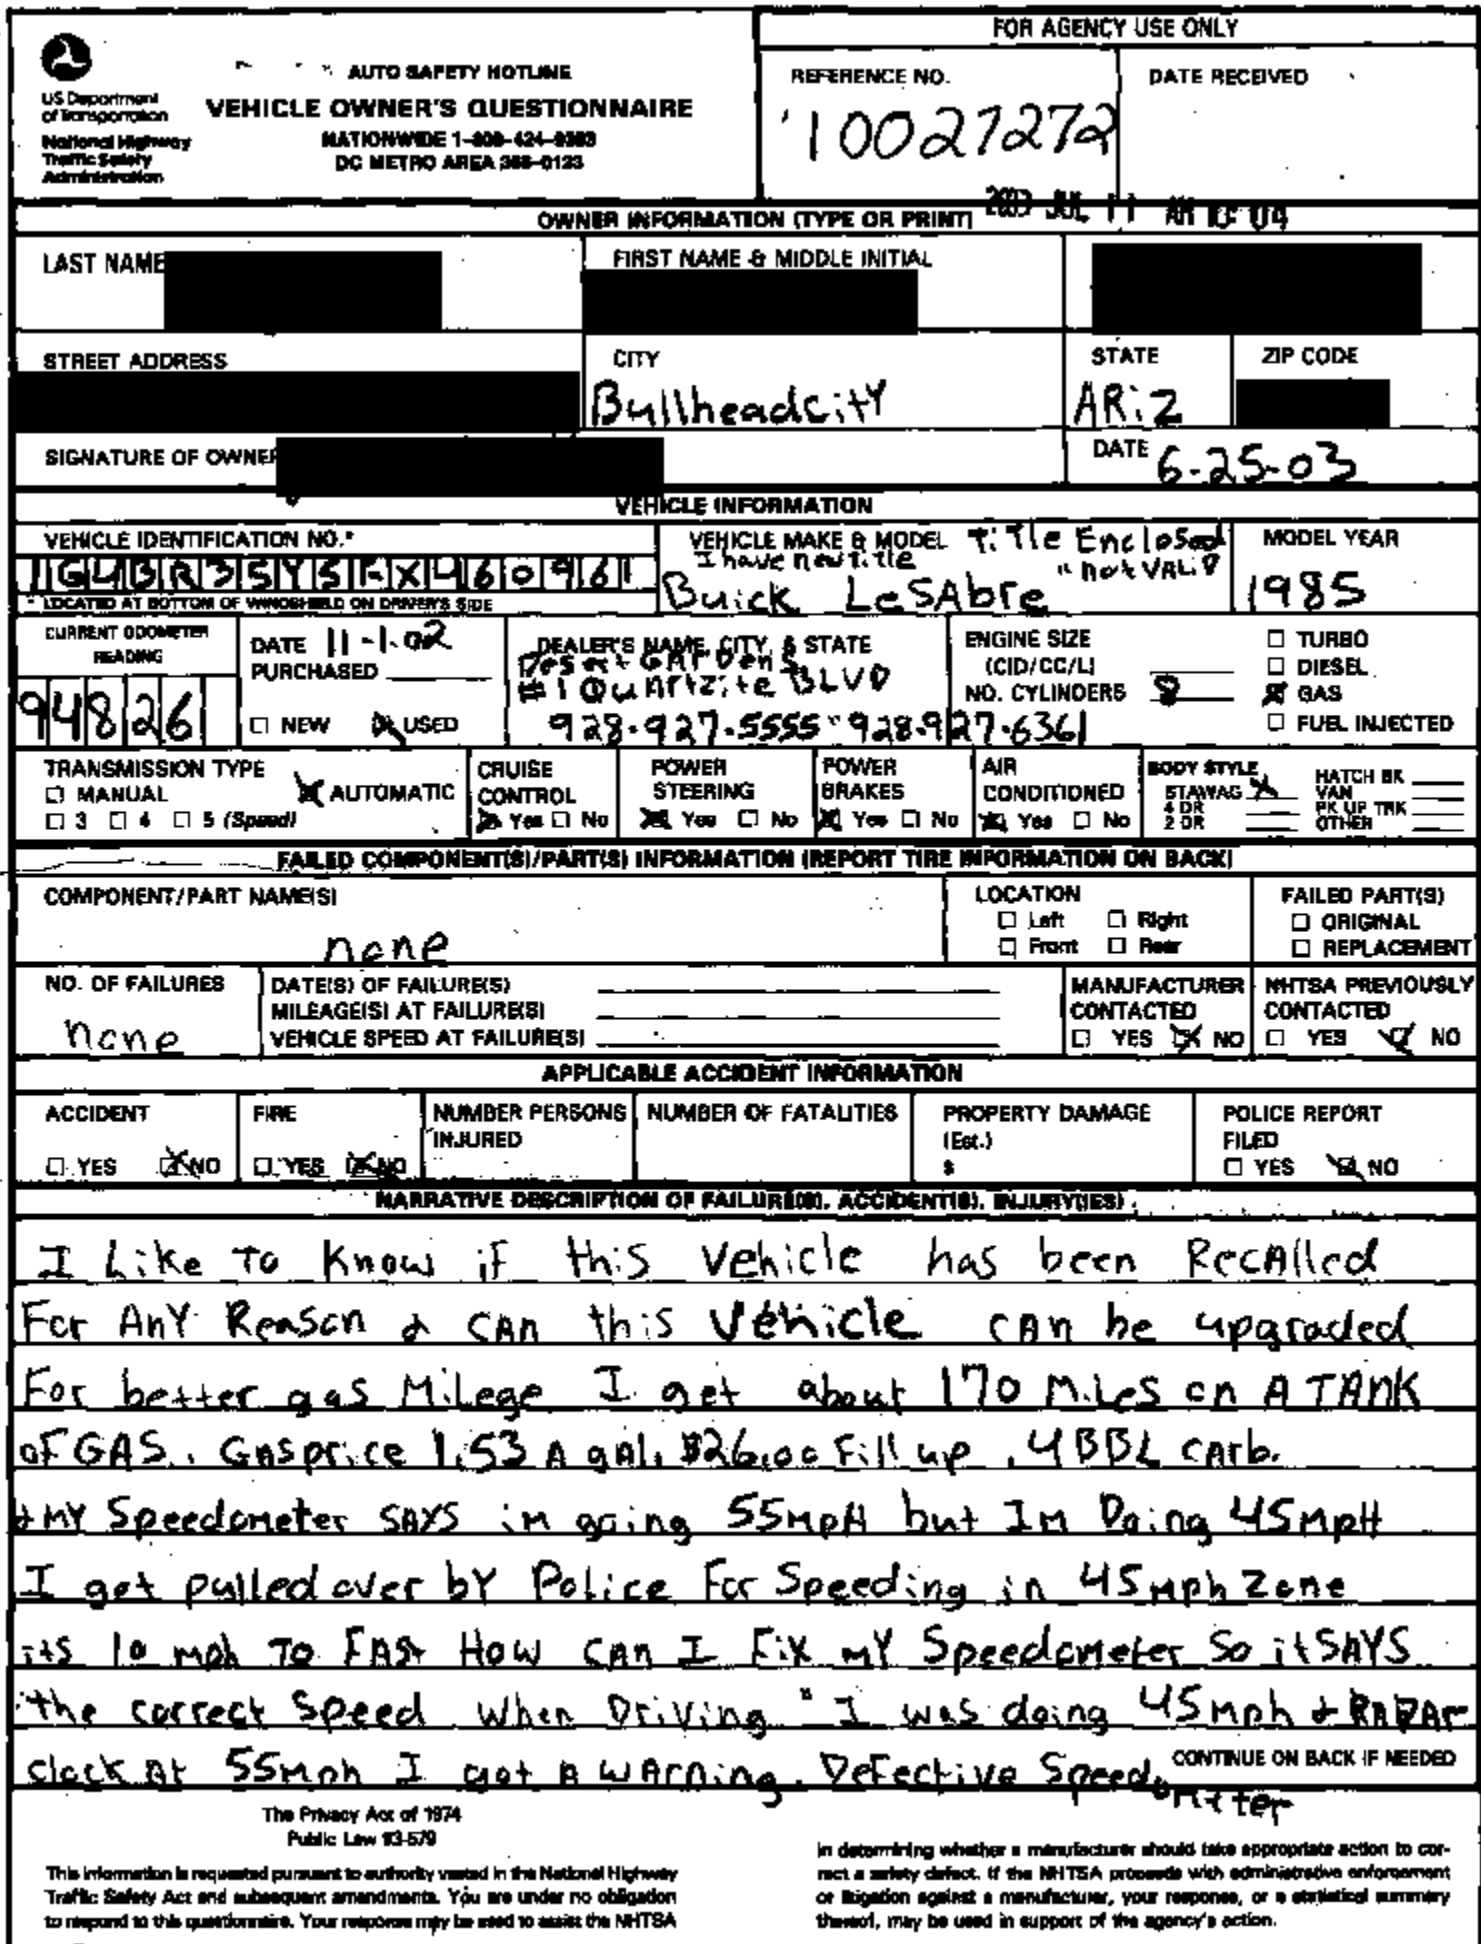 FOR AGENCY USE ONLY
US Department
of Transportation
National Highway
Traffic Safety
Administration
AUTO SAFETY HOTLINE
VEHICLE OWNER'S QUESTIONNAIRE
NATIONWIDE 1-800-424-9393
DC METRO AREA 366-0123
REFERENCE NO.
10027272
DATE RECEIVED
2003 JUL 11 AM
OWNER INFORMATION (TYPE OR PRINT)
LAST NAME
FIRST NAME & MIDDLE INITIAL
STREET ADDRESS
CITY
BullheadcitY
STATE
ARiz
ZIP CODE
SIGNATURE OF OWNER
DATE 6-25-03
VEHICLE INFORMATION
VEHICLE IDENTIFICATION NO.*
* LOCATED AT BOTTOM OF WINDSHIELD ON DRIVER'S SIDE
VEHICLE MAKE & MODEL TiTle Enclosed
I have new Title "not VALiD
Buick LeSAbre
MODEL YEAR
1985
CURRENT ODOMETER
READING
94826
DATE 11-1-02
PURCHASED
NEW USED
DEALER'S NAME, CITY, & STATE
Desert GArDens
#1 QuArtzite BLVD
928-927-5555 " 928-927-6361
ENGINE SIZE
(CID/CC/L)
NO. CYLINDERS 8
TURBO
DIESEL
GAS
FUEL INJECTED
TRANSMISSION TYPE
MANUAL AUTOMATIC
3 4 5 (Speed)
CRUISE
CONTROL
Yes No
POWER
STEERING
Yes No
POWER
BRAKES
Yes No
AIR
CONDITIONED
Yes No
BODY STYLE
STAWAG
4 DR
2 DR
HATCH BK
VAN
PK UP TRK
OTHER
FAILED COMPONENT(S)/PART(S) INFORMATION (REPORT TIRE INFORMATION ON BACK)
COMPONENT/PART NAME(S)
none
LOCATION
Left Right
Front Rear
FAILED PART(S)
ORIGINAL
REPLACEMENT
NO. OF FAILURES
none
DATE(S) OF FAILURE(S)
MILEAGE(S) AT FAILURE(S)
VEHICLE SPEED AT FAILURE(S)
MANUFACTURER
CONTACTED
YES NO
NHTSA PREVIOUSLY
CONTACTED
YES NO
APPLICABLE ACCIDENT INFORMATION
ACCIDENT
YES NO
FIRE
YES NO
NUMBER PERSONS
INJURED
NUMBER OF FATALITIES
PROPERTY DAMAGE
(Est.)
$
POLICE REPORT
FILED
YES NO
NARRATIVE DESCRIPTION OF FAILURE(S), ACCIDENT(S), INJURY(IES)
I Like To Know iF this vehicle has been RecAlled
For AnY Reason & CAn this Vehicle cAn be upgraded
For better gas Milege I get about 170 MiLes on A TAnK
oF GAS. GAS price 1.53 A gAl. $26.00 Fill up , 4BBL cArb.
& MY Speedometer SAYS im going 55MpH but Im Doing 45MpH
I got pulled over bY Police For Speeding in 45mph Zone
its 10 mph To FASt How CAn I Fix mY Speedometer So it SAYS
the correct Speed when DriVing " I was doing 45mph & RADAr
clock At 55mph I got A wArning. DeFective Speedometer
CONTINUE ON BACK IF NEEDED
The Privacy Act of 1974
Public Law 93-579
This information is requested pursuant to authority vested in the National Highway
Traffic Safety Act and subsequent amendments. You are under no obligation
to respond to this questionnaire. Your response may be used to assist the NHTSA
in determining whether a manufacturer should take appropriate action to cor-
rect a safety defect. If the NHTSA proceeds with administrative enforcement
or litigation against a manufacturer, your response, or a statistical summary
thereof, may be used in support of the agency's action.